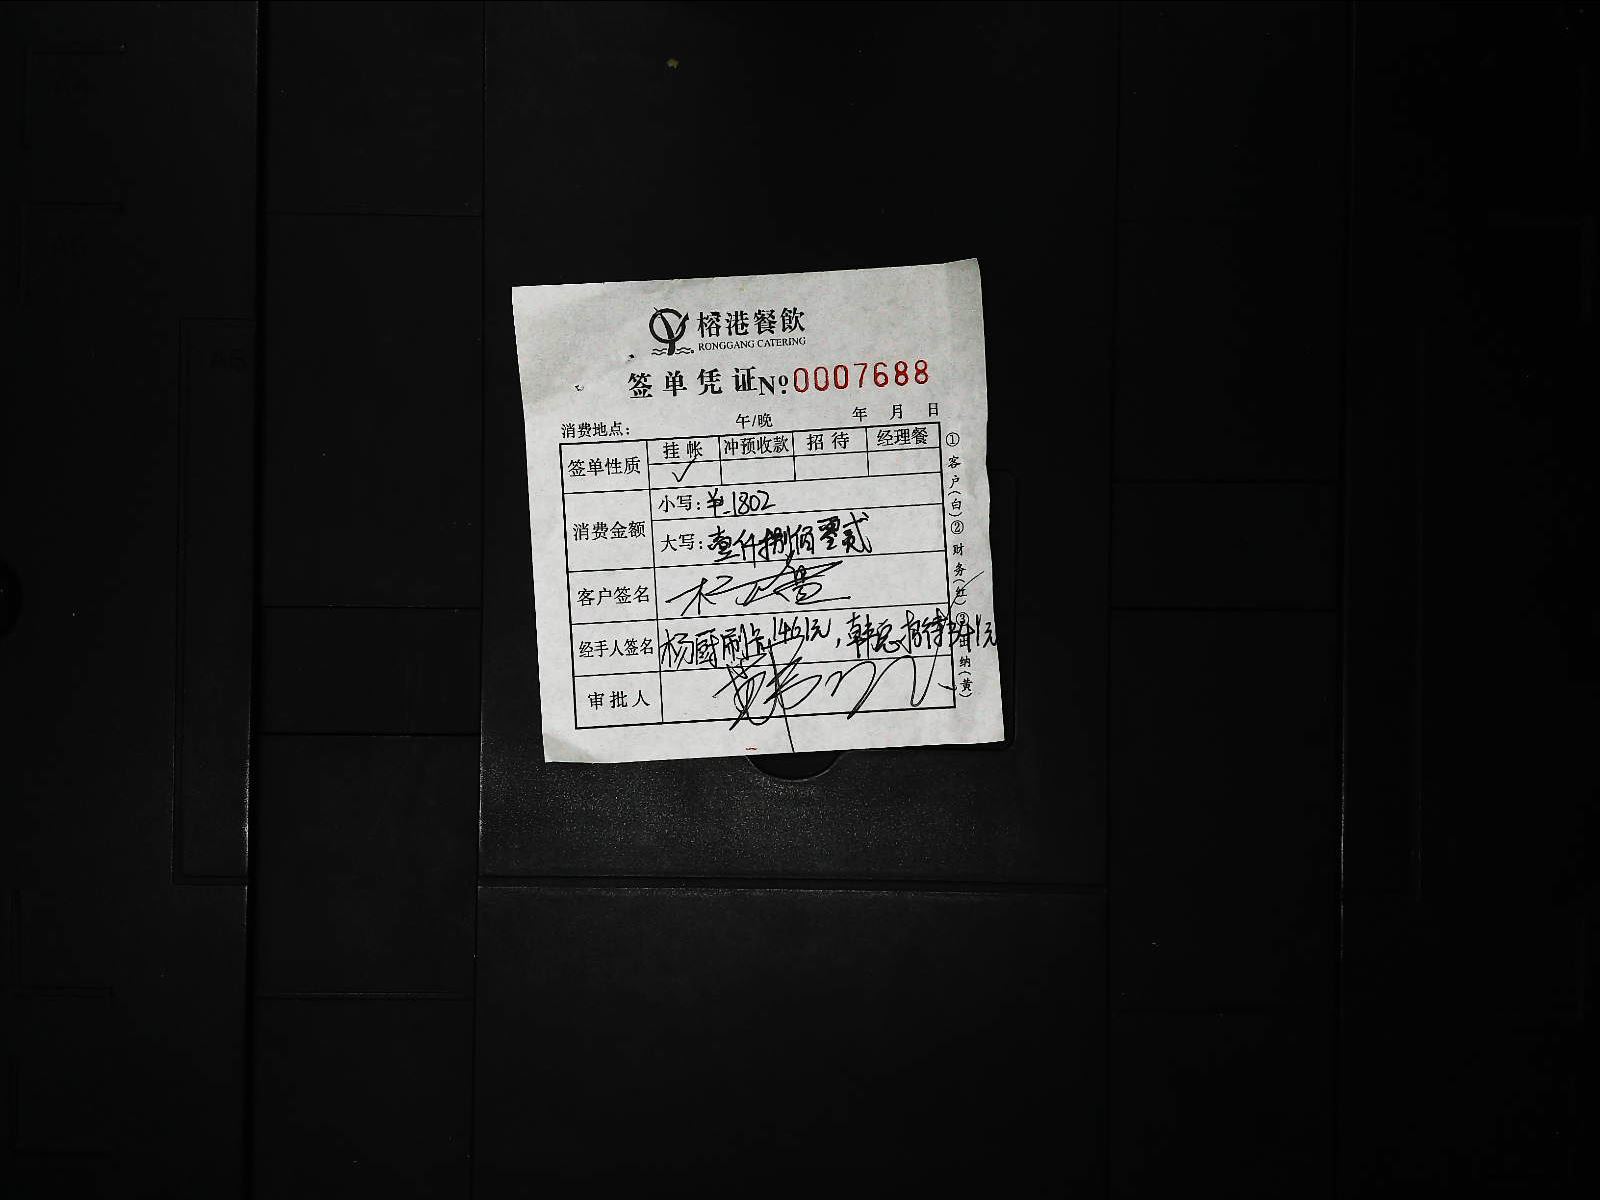 榕港餐飲
RONGGANG CATERING
签单凭证 Nº 0007688
消费地点: 午/晚 年 月 日
签单性质 挂帐 冲预收款 招待 经理餐
✓
消费金额 小写:¥1802
大写:壹仟捌佰零贰
客户签名
经手人签名 杨厨刷卡1461元,韩总招待341元
审批人
①客户(白)②财务(红)③出纳(黄)